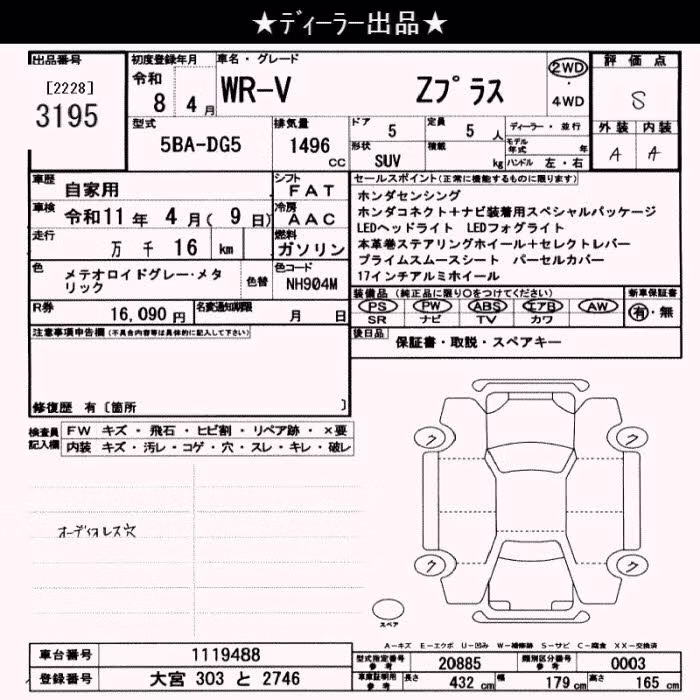 ★ディーラー出品★
出品番号
[2228]
3195
初度登録年月
令和
8 4月
車名・グレード
WR-V Zプラス
2WD
・
4WD
評価点
S
外装 内装
A A
型式
5BA-DG5
排気量
1496
CC
ドア 5
定員 5 人
形状
SUV
積載 kg
ディーラー・並行
モデル年式 年
ハンドル 左・右
車歴 自家用
シフト FAT
車検 令和11年 4月( 9日)
冷房 AAC
走行 万 千 16 km
燃料 ガソリン
色 メテオロイドグレー・メタリック
色替
色コード
NH904M
R券 16,090円
名変通知期限 月 日
セールスポイント(正常に機能するものに限ります)
ホンダセンシング
ホンダコネクト+ナビ装着用スペシャルパッケージ
LEDヘッドライト LEDフォグライト
本革巻ステアリングホイール+セレクトレバー
プライムスムースシート パーセルカバー
17インチアルミホイール
装備品(純正品に限り○をつけてください)
PS PW ABS エアB AW
SR ナビ TV カワ
新車保証書
有・無
後日品
保証書・取説・スペアキー
注意事項申告欄(不具合内容等は具体的に記入して下さい)
修復歴 有〔箇所 〕
検査員記入欄
FW キズ・飛石・ヒビ割・リペア跡・×要
内装 キズ・汚レ・コゲ・穴・スレ・キレ・破レ
オーディオレス穴
ウ ウ
ウ ウ
スペア
A-キズ E-エクボ U-凹み W-補修跡 S-サビ C-腐食 XX-交換済
車台番号 1119488
登録番号 大宮 303 と 2746
型式指定番号参考 20885
類別区分番号参考 0003
車庫証明用参考 長さ 432 cm 幅 179 cm 高さ 165 cm